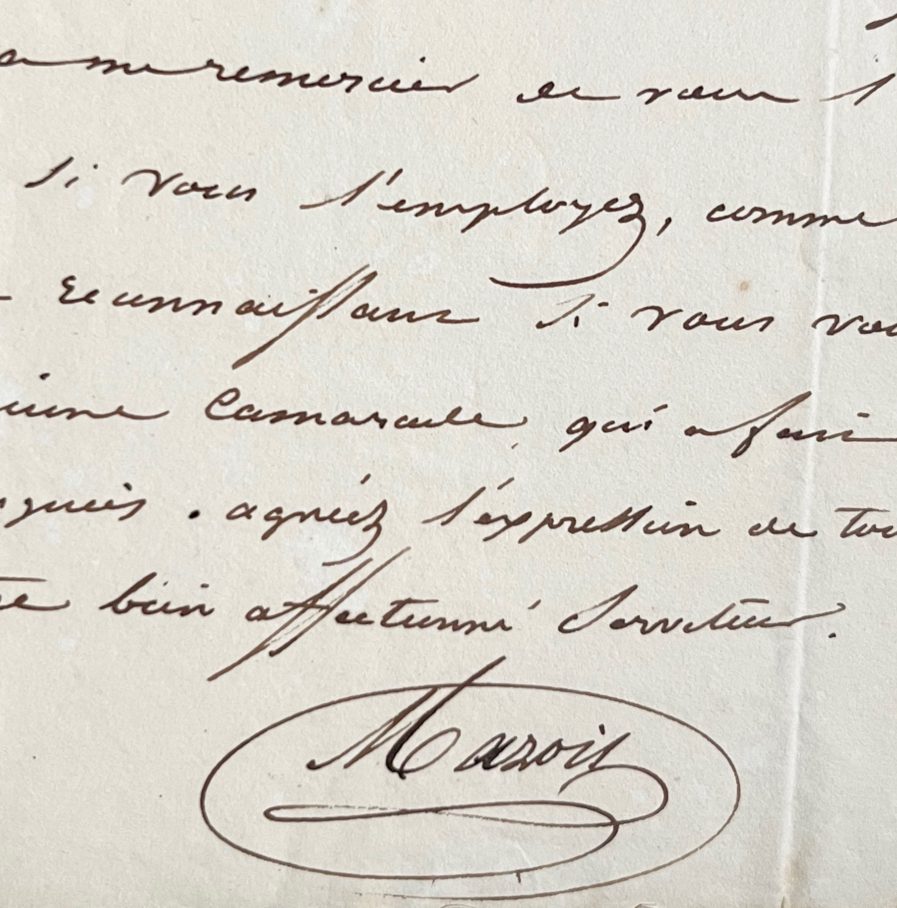 me remercier de vous
si vous l'employez, comme
reconnaissant si vous
Camarade qui a fait
agréez l'expression de
bien affectionné Serviteur.
Mazois